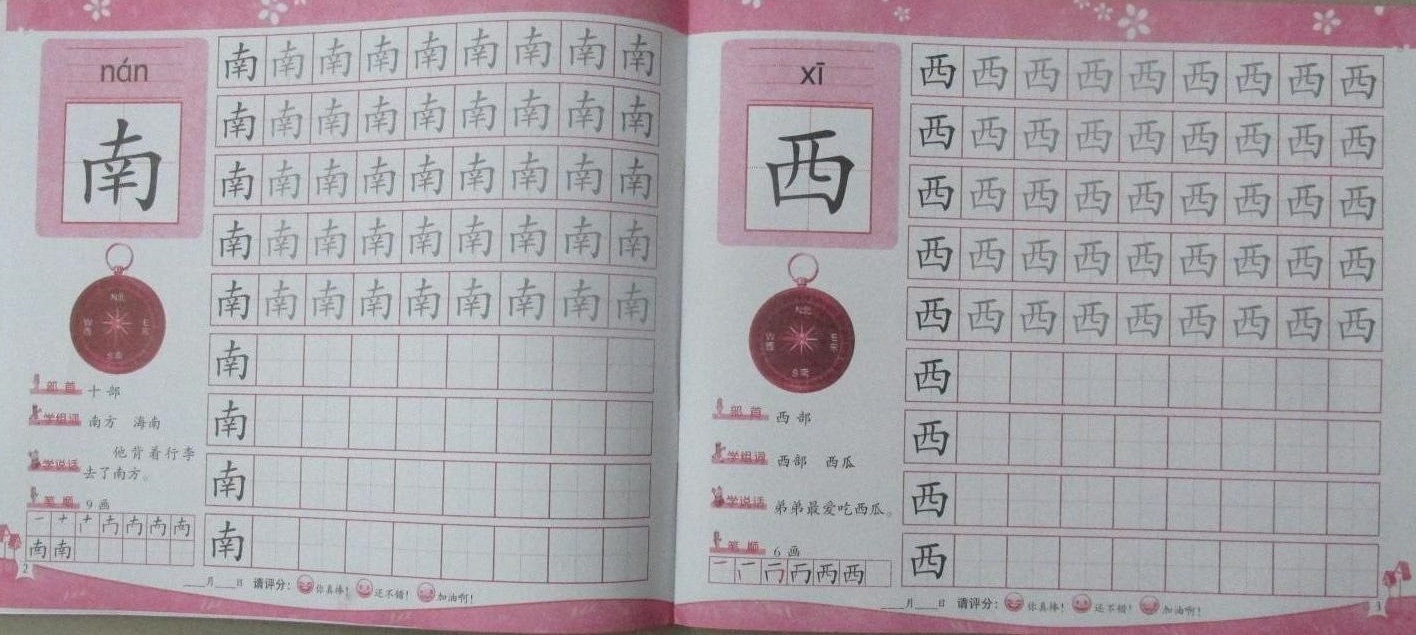 nán
南
南 南 南 南 南 南 南 南 南
南 南 南 南 南 南 南 南 南
南 南 南 南 南 南 南 南 南
南 南 南 南 南 南 南 南 南
南 南 南 南 南 南 南 南 南
南
南
南
南
N北
W西 E东
S南
部首 十部
学组词 南方 海南
学说话 他背着行李
去了南方。
笔顺 9画
南 南
2
____月____日 请评分: 你真棒! 还不错! 加油啊!
xī
西
西 西 西 西 西 西 西 西 西
西 西 西 西 西 西 西 西 西
西 西 西 西 西 西 西 西 西
西 西 西 西 西 西 西 西 西
西 西 西 西 西 西 西 西 西
西
西
西
西
N北
W西 E东
S南
部首 西部
学组词 西部 西瓜
学说话 弟弟最爱吃西瓜。
笔顺 6画
西
____月____日 请评分: 你真棒! 还不错! 加油啊!
3